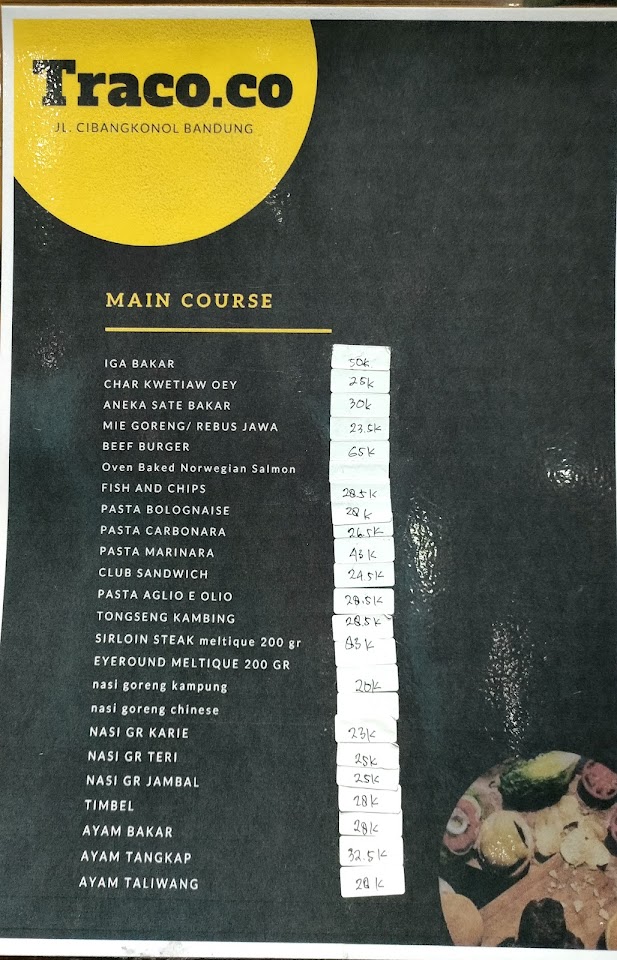 Traco.co
JL. CIBANGKONOL BANDUNG
MAIN COURSE
IGA BAKAR 50K
CHAR KWETIAW OEY 25K
ANEKA SATE BAKAR 30K
MIE GORENG/ REBUS JAWA 23.5K
BEEF BURGER 65K
Oven Baked Norwegian Salmon
FISH AND CHIPS 28.5K
PASTA BOLOGNAISE 28K
PASTA CARBONARA 26.5K
PASTA MARINARA 43K
CLUB SANDWICH 24.5K
PASTA AGLIO E OLIO 28.5K
TONGSENG KAMBING 28.5K
SIRLOIN STEAK meltique 200 gr
EYEROUND MELTIQUE 200 GR
nasi goreng kampung 20K
nasi goreng chinese
NASI GR KARIE 23K
NASI GR TERI 25K
NASI GR JAMBAL 25K
TIMBEL 28K
AYAM BAKAR 28K
AYAM TANGKAP 32.5K
AYAM TALIWANG 28K